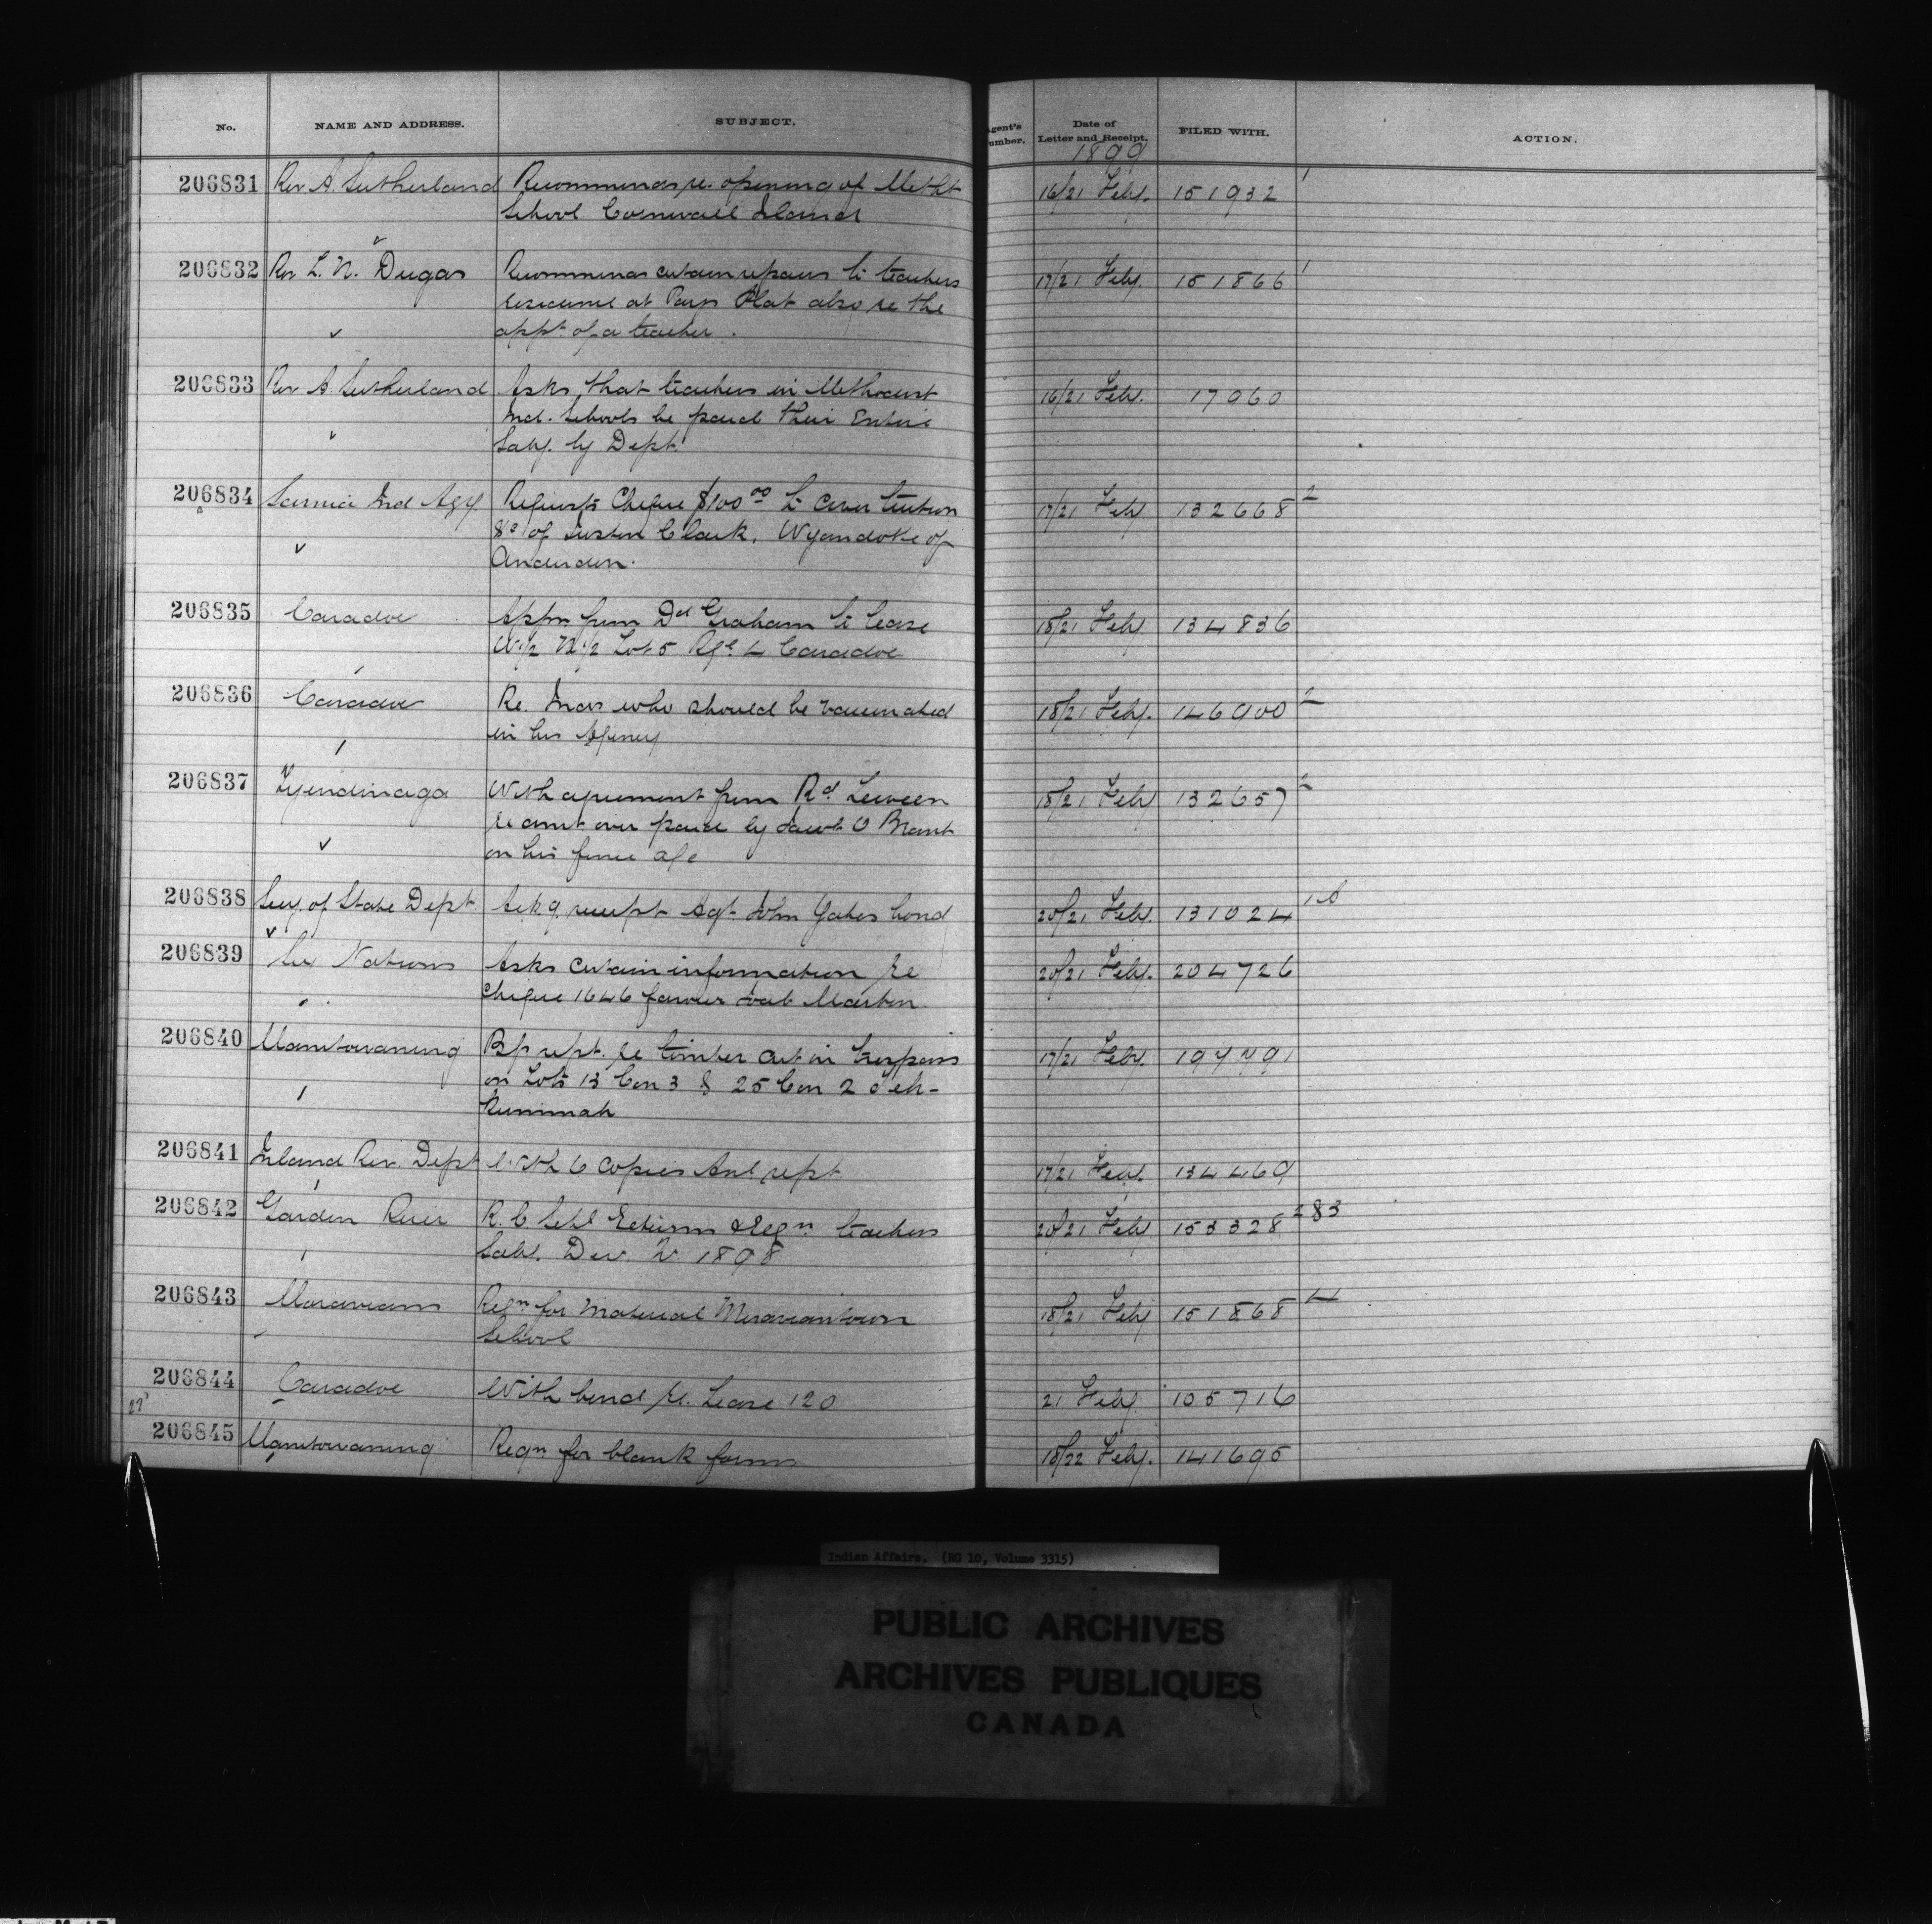 No. NAME AND ADDRESS. SUBJECT. Agent's Number. Date of Letter and Receipt. FILED WITH. ACTION.
1899
206831 Rev A. Sutherland Recommends re. opening of Metht 16/21 Feby. 151932 1
School Cornwall Island
206832 Rev L. N. Dugas Recommends certain repairs to teachers 17/21 Feby. 151866 1
residence at Pays Plat also re the
appt. of a teacher.
206833 Rev A. Sutherland Asks that teachers in Methodist 16/21 Feby. 17960
Ind. Schools be paid their Entire
Saly. by Dept.
206834 Sarnia Ind Agy Requests Cheque $100.00 to cover tuition 17/21 Feby 132668 2
&c of Clark, Wyandotte of
Anderdon.
206835 Caradoc Appn from Dd Graham to lease 18/21 Feby 134836
W½ N½ Lot 5 Rge 4 Caradoc
206836 Caradoc Re. Inds who should be vaccinated 18/21 Feby. 146900 2
in his Agency
206837 Tyendinaga With agreement from Rd 18/21 Feby 132657 2
re amt over paid by Jacob O Brant
on his fence a/c
206838 Secy. of State Dept Ackg receipt Agt. John bond 20/21 Feby. 131024
206839 Six Nations Asks certain information re 20/21 Feby. 204726
Cheque 1646 favour Martin
206840 Manitowaning rept. re timber cut in trespass 17/21 Feby.
on Lots 13 Con 3 & 25 Con 2 Teh-
kummah
206841 Inland Rev. Dept With 6 copies Anl rept. 17/21 Feby. 134469
206842 Garden River R. C. Schl Returns & Reqn teachers 20/21 Feby 153328 283
Saly. Dec. Qr. 1898
206843 Moravians Reqn for Material Moraviantown 18/21 Feby 151868 4
School
206844 Caradoc With bond re. Lease 120 21 Feby. 105716
22
206845 Manitowaning Reqn for blank forms 18/22 Feby. 141695
Indian Affairs. (RG 10, Volume 3315)
PUBLIC ARCHIVES
ARCHIVES PUBLIQUES
CANADA